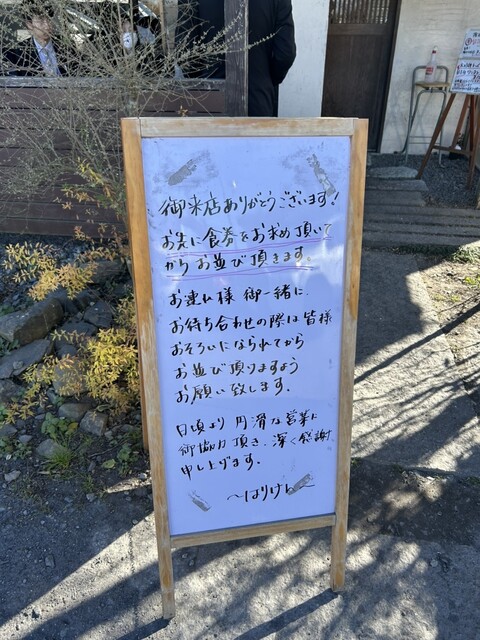 御来店ありがとうございます!
お先に食券をお求め頂いて
からお並び頂きます。
お連れ様御一緒に
お待ち合わせの際は皆様
おそろいになられてから
お並び頂りますよう
お願い致します。
日頃より円滑な営業に
御協力頂き、深く感謝
申し上げます。
〜はりけん〜